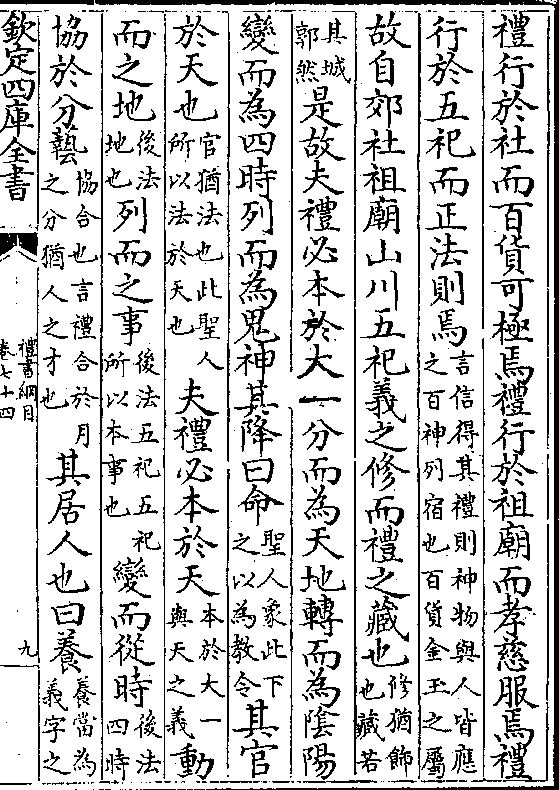 禮行於社而百貨可極焉禮行於祖廟而孝慈服焉禮
行於五祀而正法則焉言信得其禮則神物與人皆應之百神列宿也百貨金玉之屬
故自郊社祖廟山川五祀義之修而禮之藏也修猶飾也藏若
其城郭然是故夫禮必本於大一分而為天地轉而為陰陽
變而為四時列而為鬼神其降曰命聖人象此下之以為教令其官
於天也官猶法也此聖人所以法於天也夫禮必本於天本於大一與天之義動
而之地後法地也列而之事後法五祀五祀所以本事也變而從時後法四時
協於分藝協合也言禮合於月之分猶人之才也其居人也曰養養當為義字之
欽定四庫全書
禮書綱目
卷七十四
九